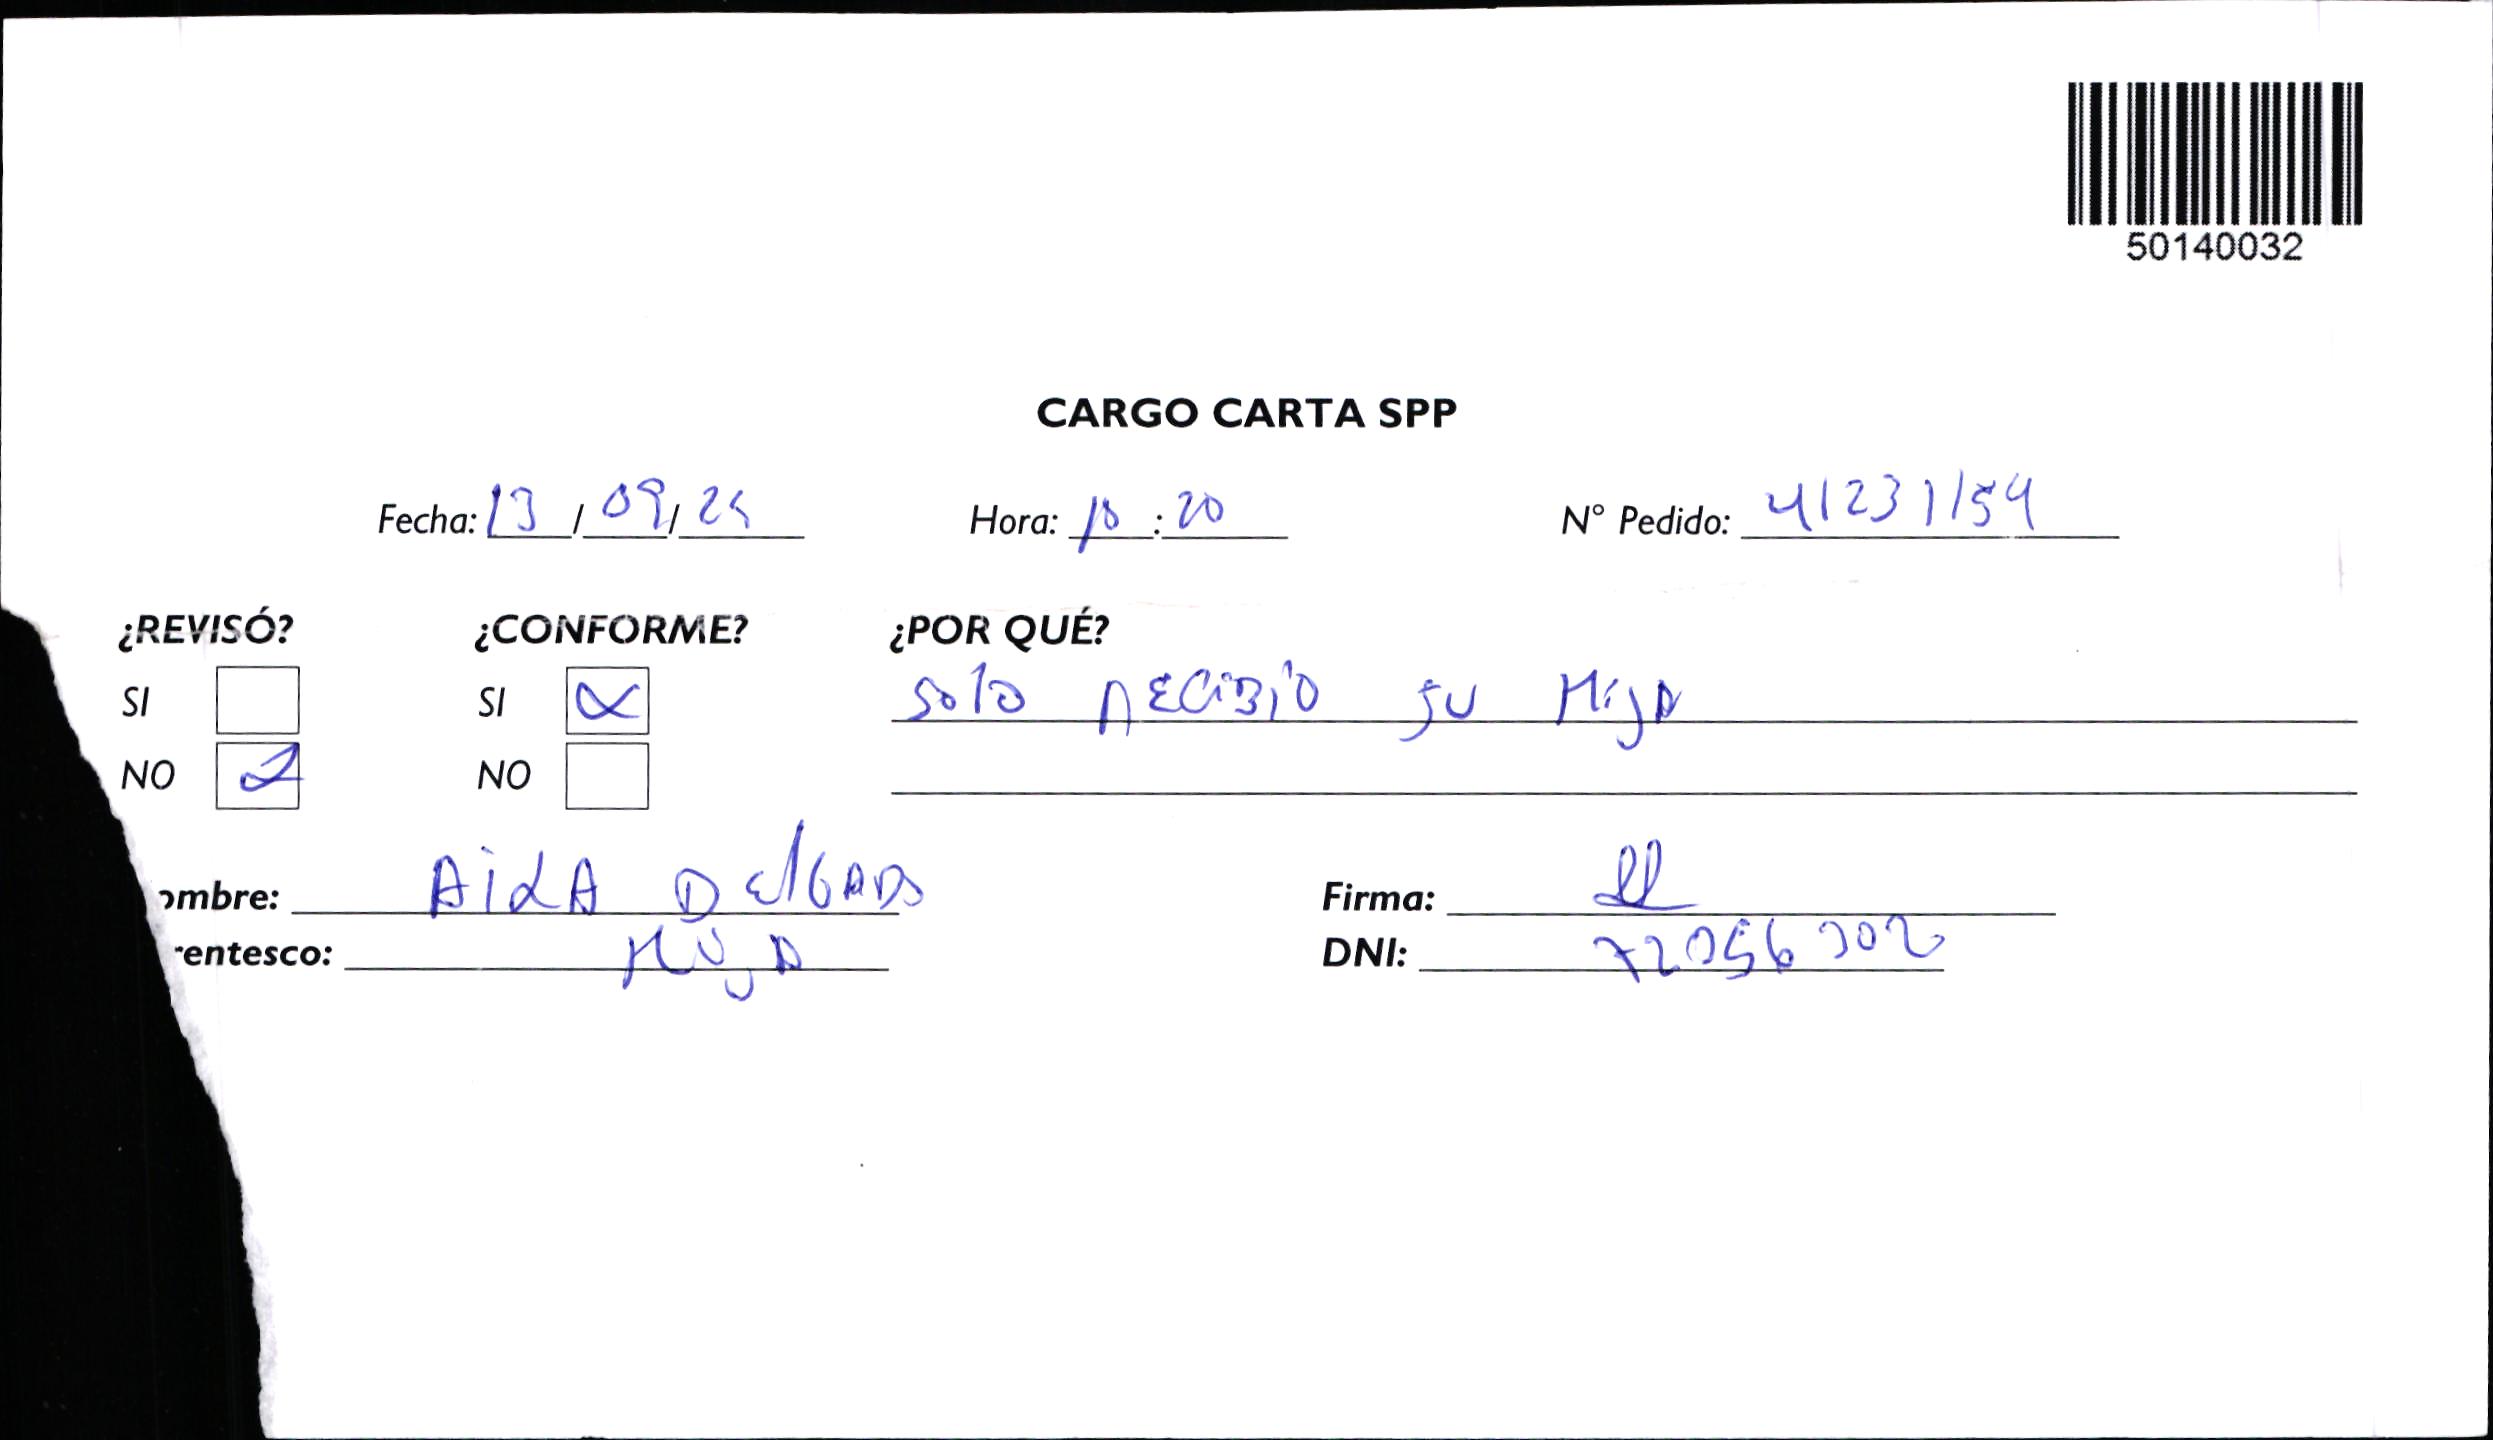 50140032
CARGO CARTA SPP
Fecha: 13 / 09 / 25 Hora: 10 : 20 N° Pedido: 41231154
¿REVISÓ? ¿CONFORME? ¿POR QUÉ?
SI SI Solo RECIBIO SU HijA
NO NO
ombre: AiDA DElGADO Firma:
rentesco: HijA DNI: